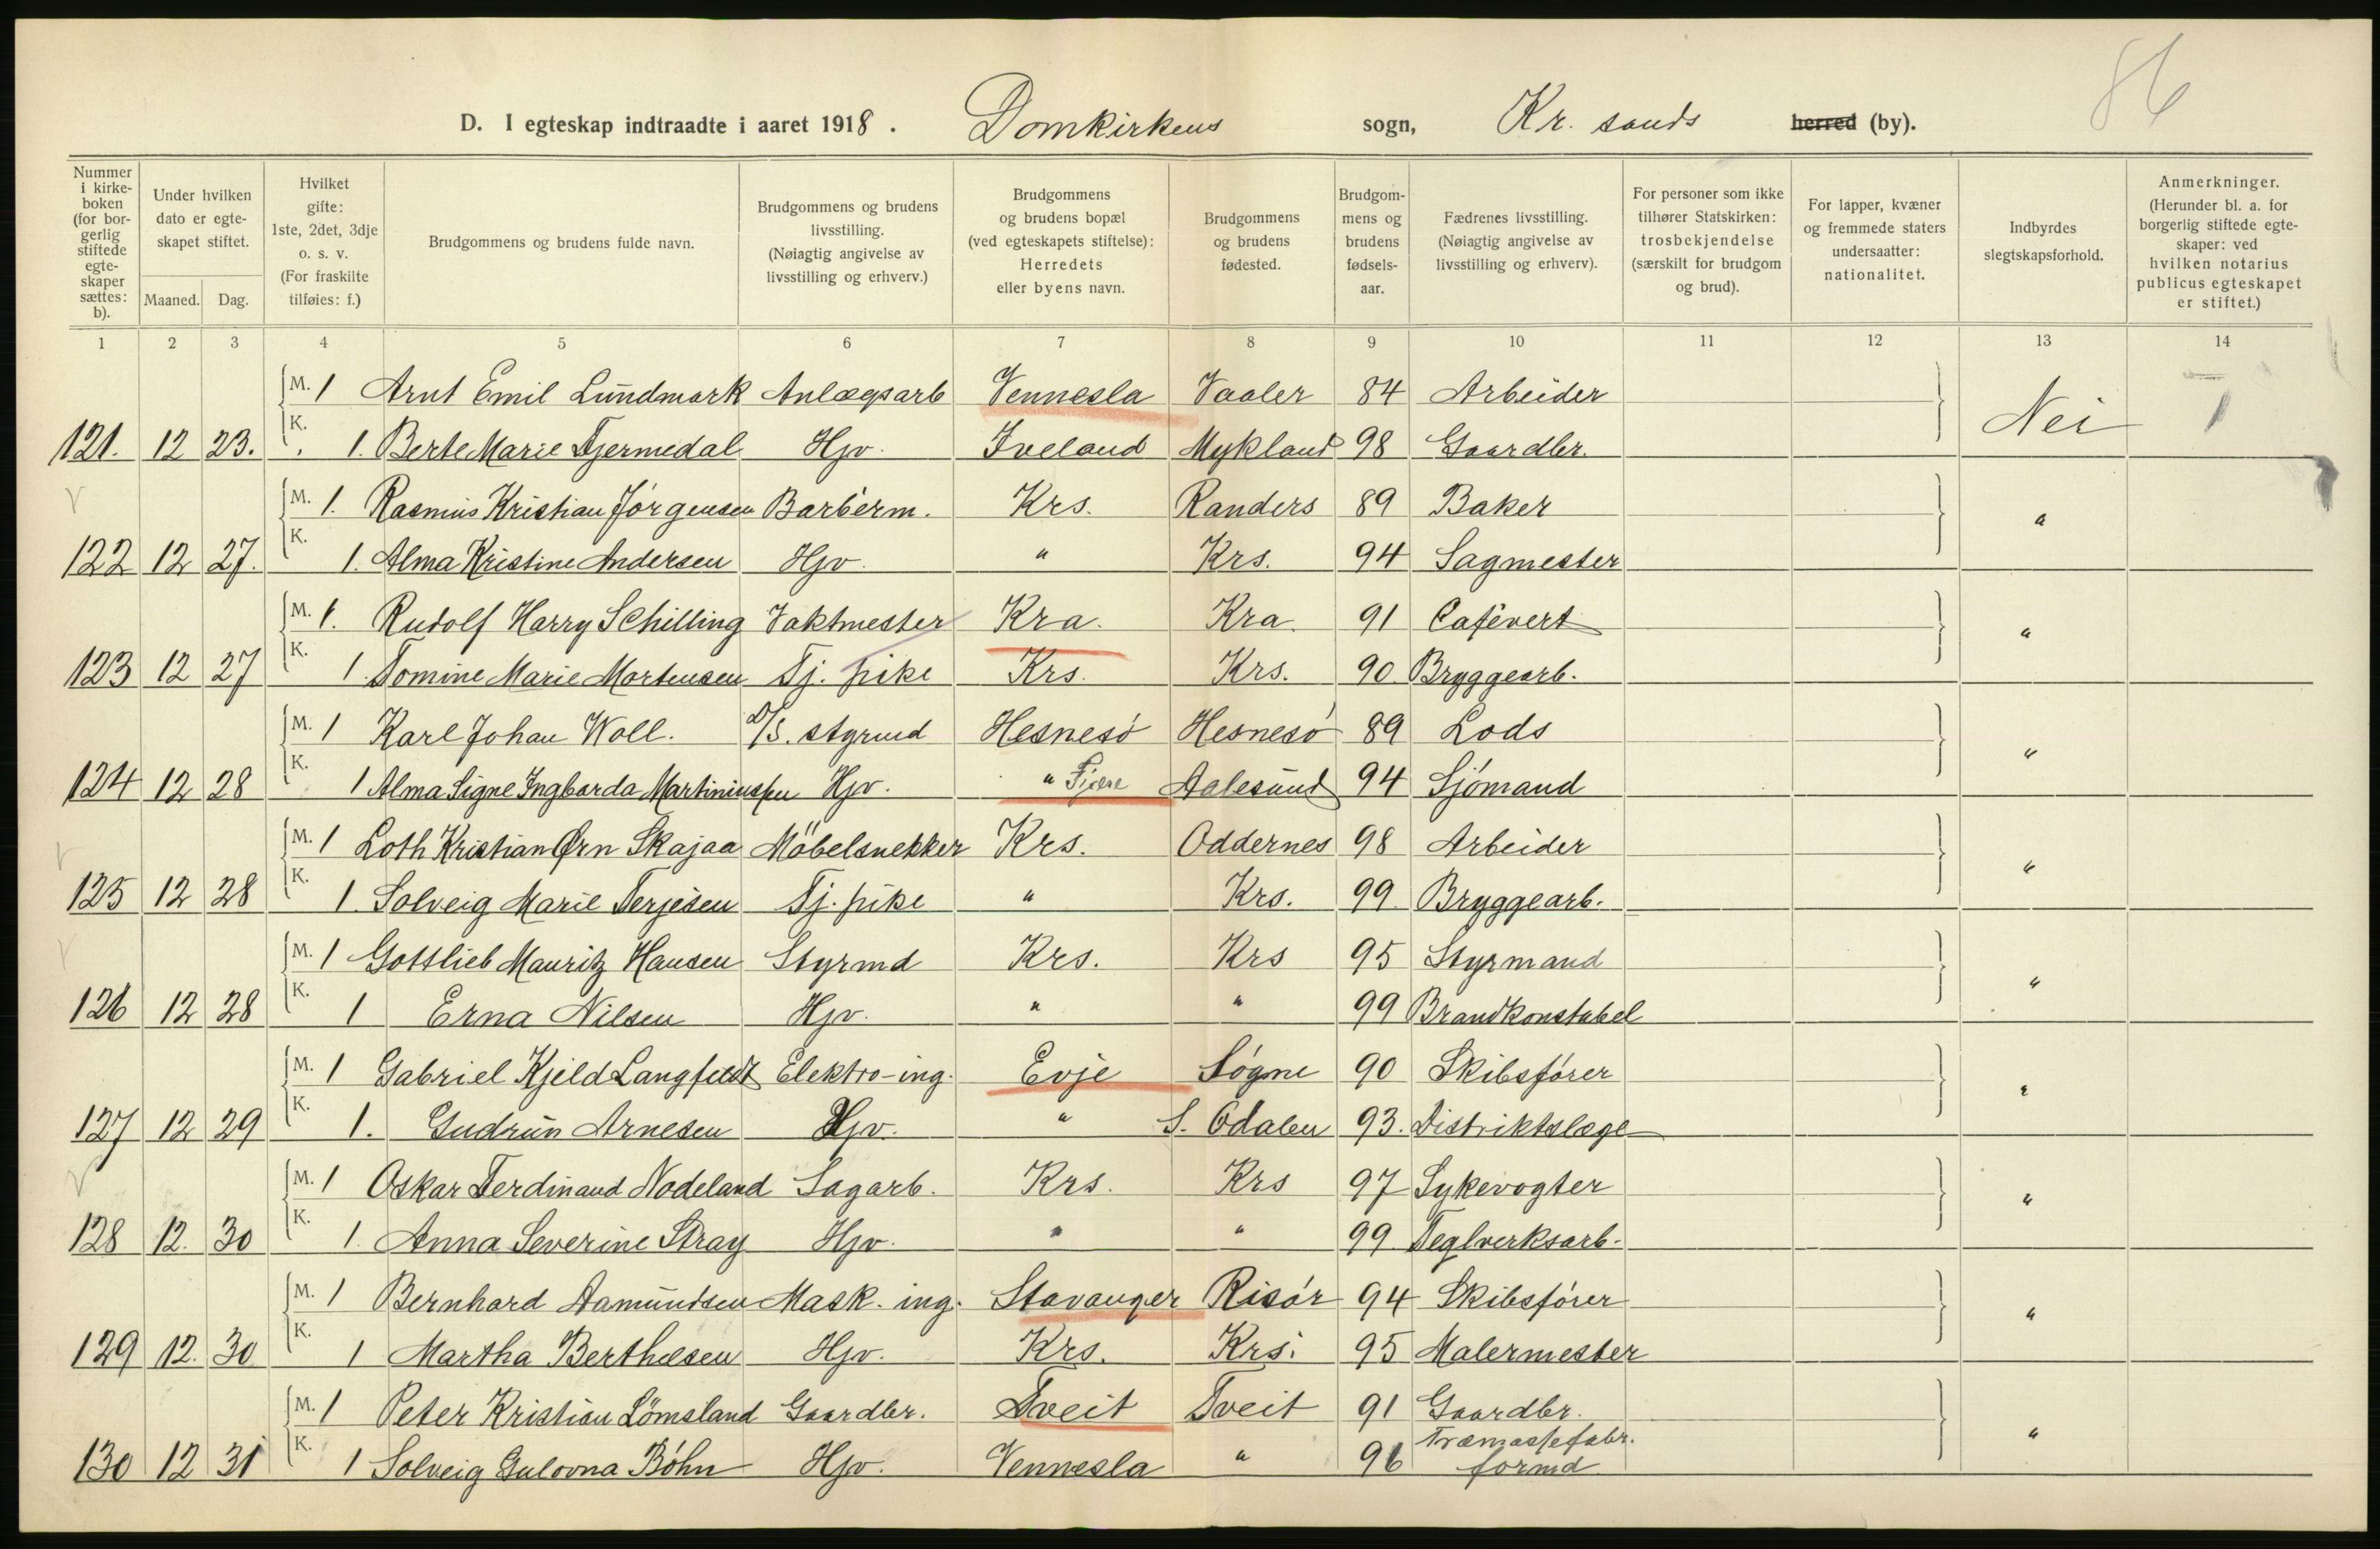 86
D. I egteskap indtraadte i aaret 1918. Domkirkens sogn, Kr. sands herred (by).
Nummer i kirkeboken (for borgerlig stiftede egteskaper sættes: b).
Under hvilken dato er egteskapet stiftet.
Maaned. Dag.
Hvilket gifte: 1ste, 2det, 3dje o. s. v. (For fraskilte tilføies: f.)
Brudgommens og brudens fulde navn.
Brudgommens og brudens livsstilling. (Nøiagtig angivelse av livsstilling og erhverv.)
Brudgommens og brudens bopæl (ved egteskapets stiftelse): Herredets eller byens navn.
Brudgommens og brudens fødested.
Brudgommens og brudens fødselsaar.
Fædrenes livsstilling. (Nøiagtig angivelse av livsstilling og erhverv).
For personer som ikke tilhører Statskirken: trosbekjendelse (særskilt for brudgom og brud).
For lapper, kvæner og fremmede staters undersaatter: nationalitet.
Indbyrdes slegtskapsforhold.
Anmerkninger. (Herunder bl. a. for borgerlig stiftede egteskaper: ved hvilken notarius publicus egteskapet er stiftet.)
1 2 3 4 5 6 7 8 9 10 11 12 13 14
M. 1 Arnt Emil Lundmark Anlægsarb Vennesla Vaaler 84 Arbeider
121. 12 23. K. 1. Berte Marie Tjermedal Hjv. Iveland Mykland 98 Gaardbr. Nei 1
M. 1. Rasmus Kristian Jörgensen Barberm. Krs. Randers 89 Baker
122 12 27. K. 1. Alma Kristine Andersen Hjv. " Krs. 94 Sagmester "
M. 1. Rudolf Harry Schilling Vaktmester Kra. Kra. 91 Cafévert
123 12 27 K. 1. Tomine Marie Mortensen Tj. pike Krs. Krs. 90 Bryggearb. "
M. 1 Karl Johan Woll. D/S. styrmd Hesnesö Hesnesö 89 Lods
124 12 28 K. 1 Alma Signe Ingbarda Martiniussen Hjv. " Fjære Aalesund 94 Sjömand "
M. 1 Loth Kristian Ørn Skajaa Möbelsnekker Krs. Oddernes 98 Arbeider
125 12 28 K. 1. Solveig Marie Terjesen Tj. pike " Krs. 99 Bryggearb. "
M. 1 Gottlieb Mauritz Hansen Styrmd Krs. Krs 95 Styrmand
126 12 28 K. 1 Erna Nilsen Hjv. " " 99 Brandkonstabel "
M. 1 Gabriel Kjeld Langfeldt Elektro-ing. Evje Søgne 90 Skibsfører
127 12 29 K. 1. Gudrun Arnesen Hjv. " S. Odalen 93. Distriktslæge "
M. 1 Oskar Ferdinand Nodeland Sagarb. Krs. Krs 97 Sykevogter
128 12. 30 K. 1. Anna Severine Stray Hjv. " " 99 Teglverksarb. "
M. 1 Bernhard Aamundsen Mask. ing. Stavanger Risör 94 Skibsfører
129 12. 30 K. 1 Martha Berthelsen Hjv. Krs. Krs. 95 Malermester "
M. 1 Peter Kristian Lömsland Gaardbr. Tveit Tveit 91 Gaardbr.
130 12 31 K. 1 Solveig Gulovna Böhn Hjv. Vennesla " 96 Træmassefabr. formd "